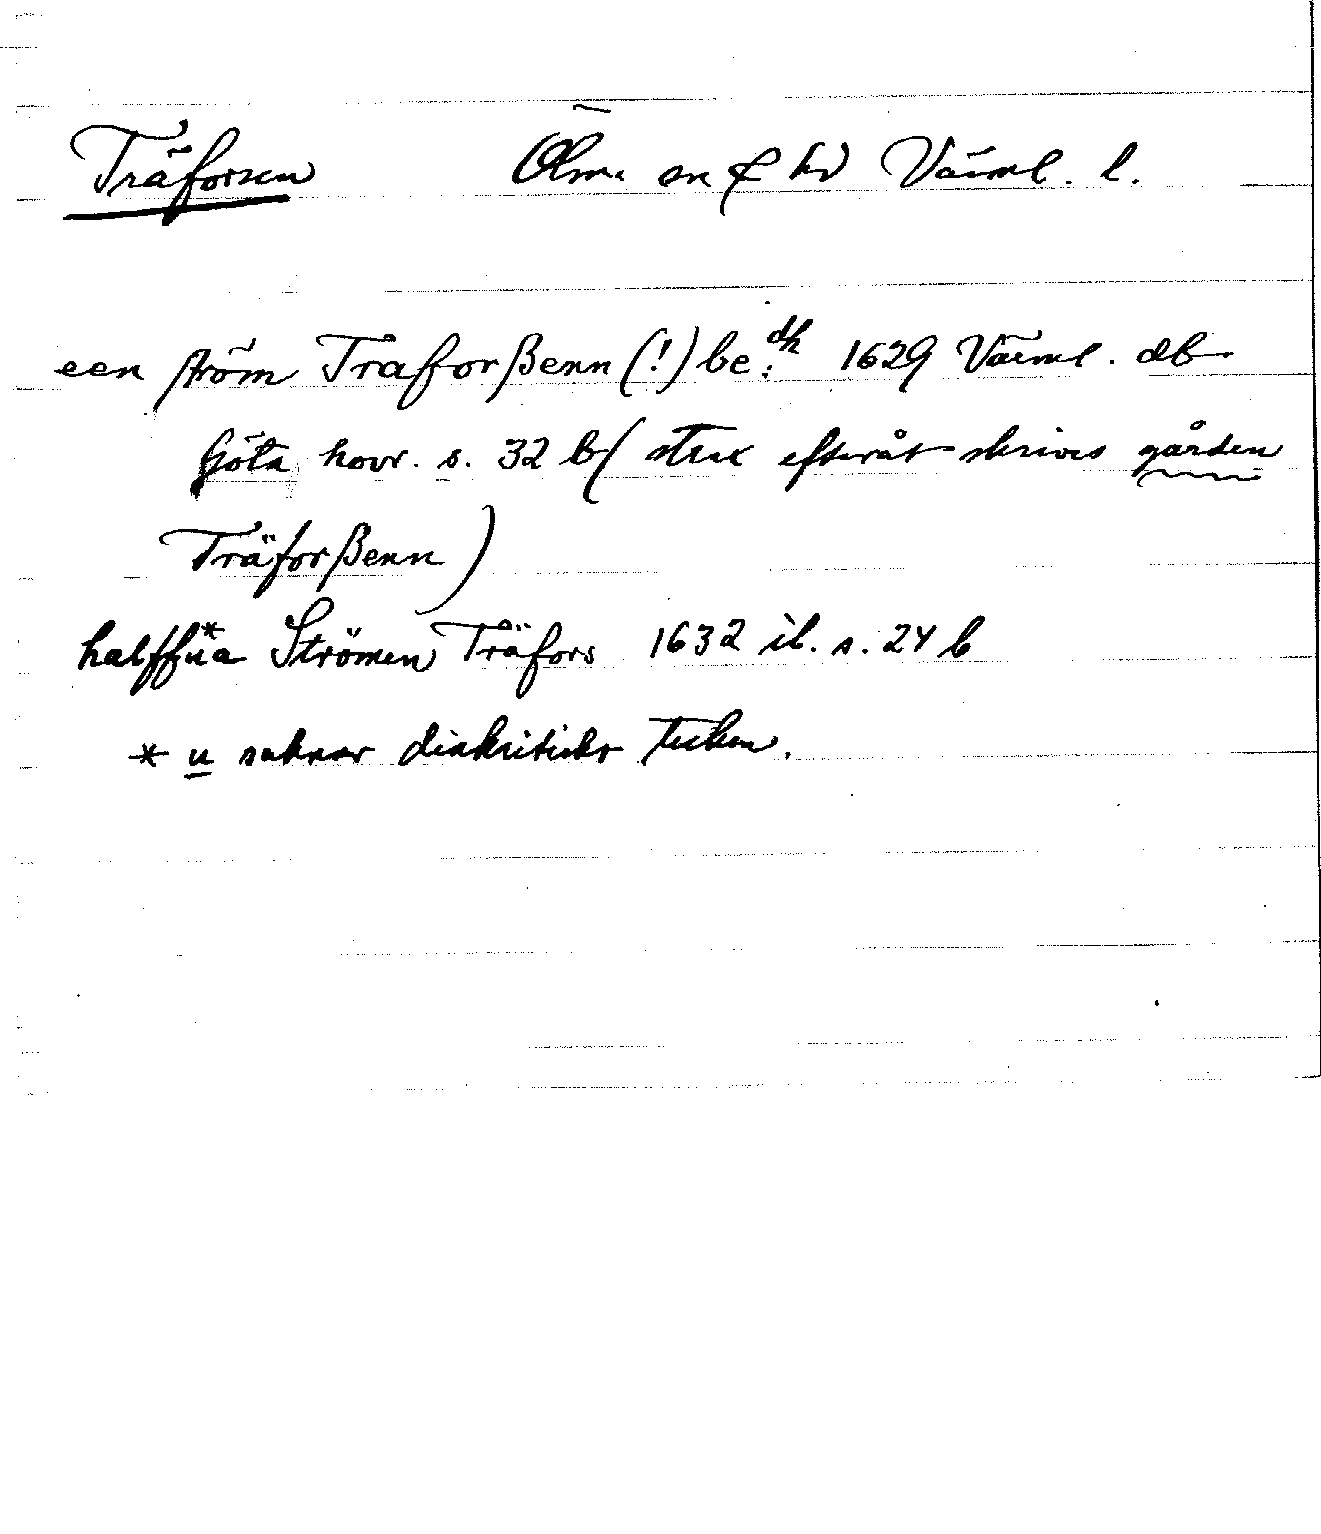 Träforsen Ölme sn & hd Värml. l.
een ström Traforßenn (!) be:dh 1629 Värml. db
Göta hovr. s. 32 b (strax efteråt skrives gården
Träforßenn)
halffua* Strömen Träfors 1632 ib. s. 24 b
* u saknar diakritiskt tecken.